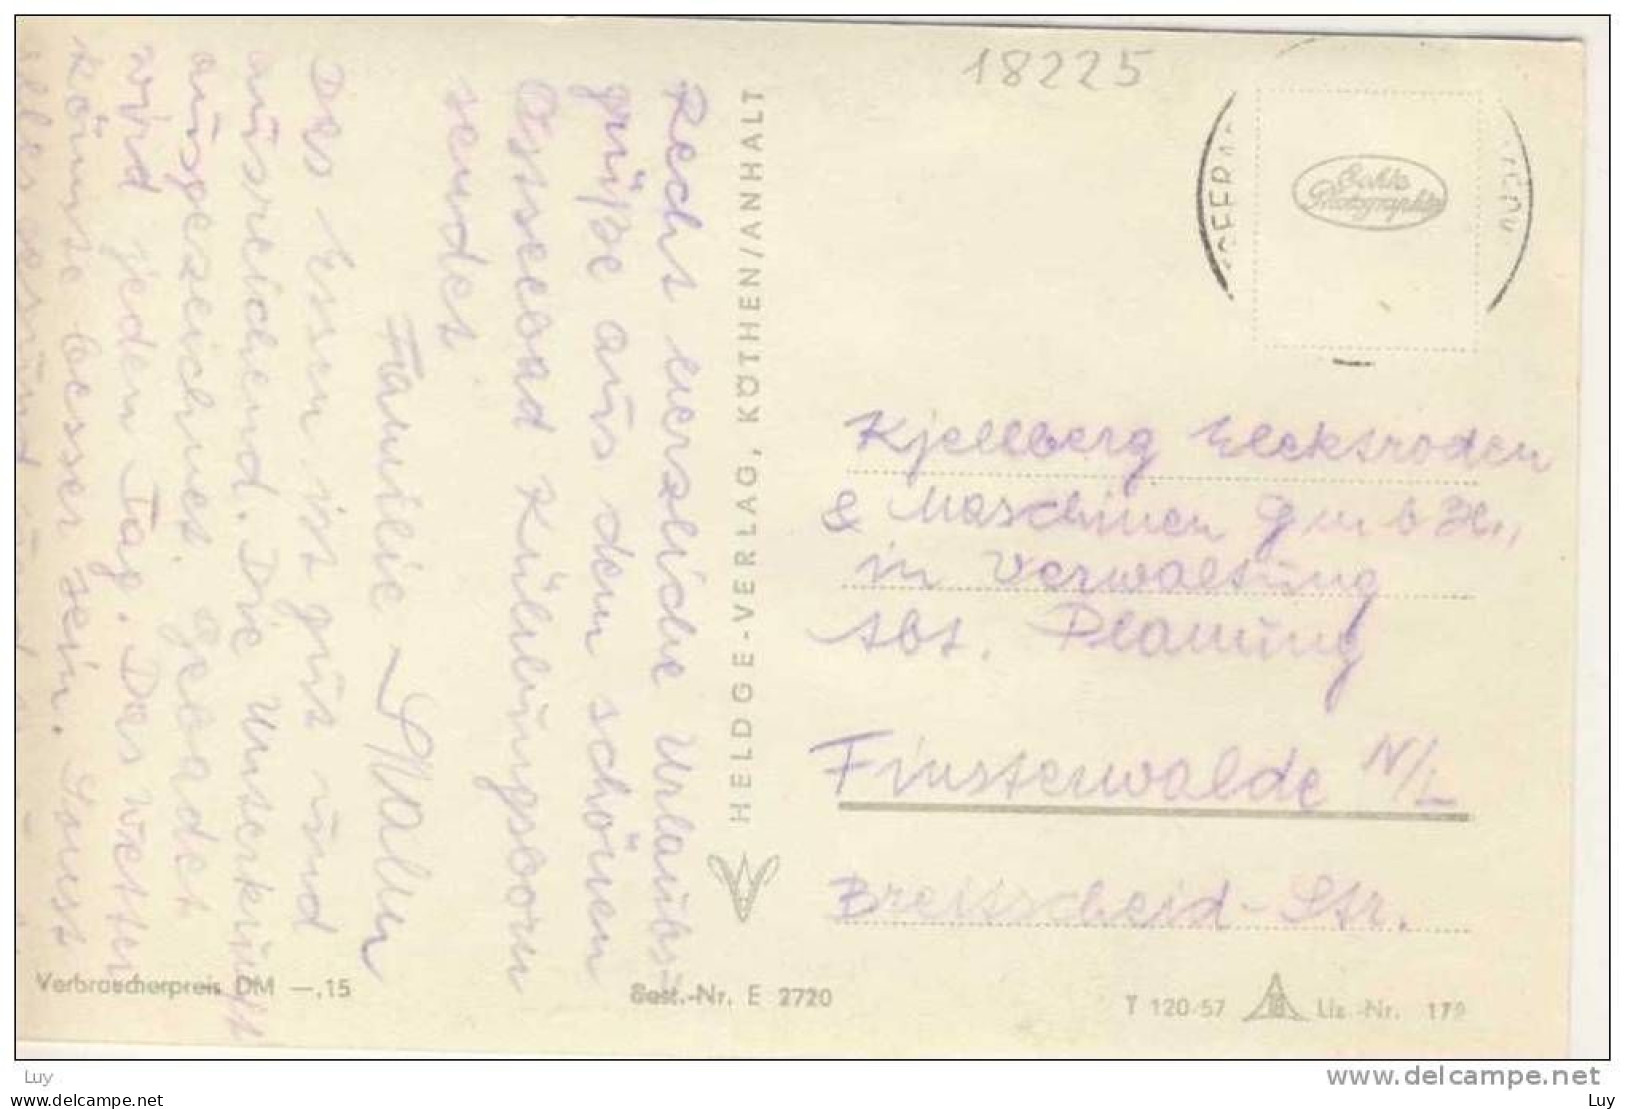 18225
Echte
Photographie
Recht herzliche Urlaubs-
grüße aus dem schönen
Ostseebad Kühlungsborn
sendet
Familie
Das Essen ist gut und
ausreichend. Die Unterkunft
ausgezeichnet. Gebadet
wird jeden Tag. Das Wetter
könnte besser sein. Sonst
HELDGE-VERLAG, KÖTHEN/ANHALT
Kjellberg Elecktroden
& Maschinen GmbH.,
in Verwaltung
Abt. Planung
Finsterwalde N/L
Breitscheid-Str.
Verbraucherpreis DM —,15
Best.-Nr. E 2720
T 120/57 Liz.-Nr. 179
Luy
www.delcampe.net
Luy
www.delcampe.net
Luy